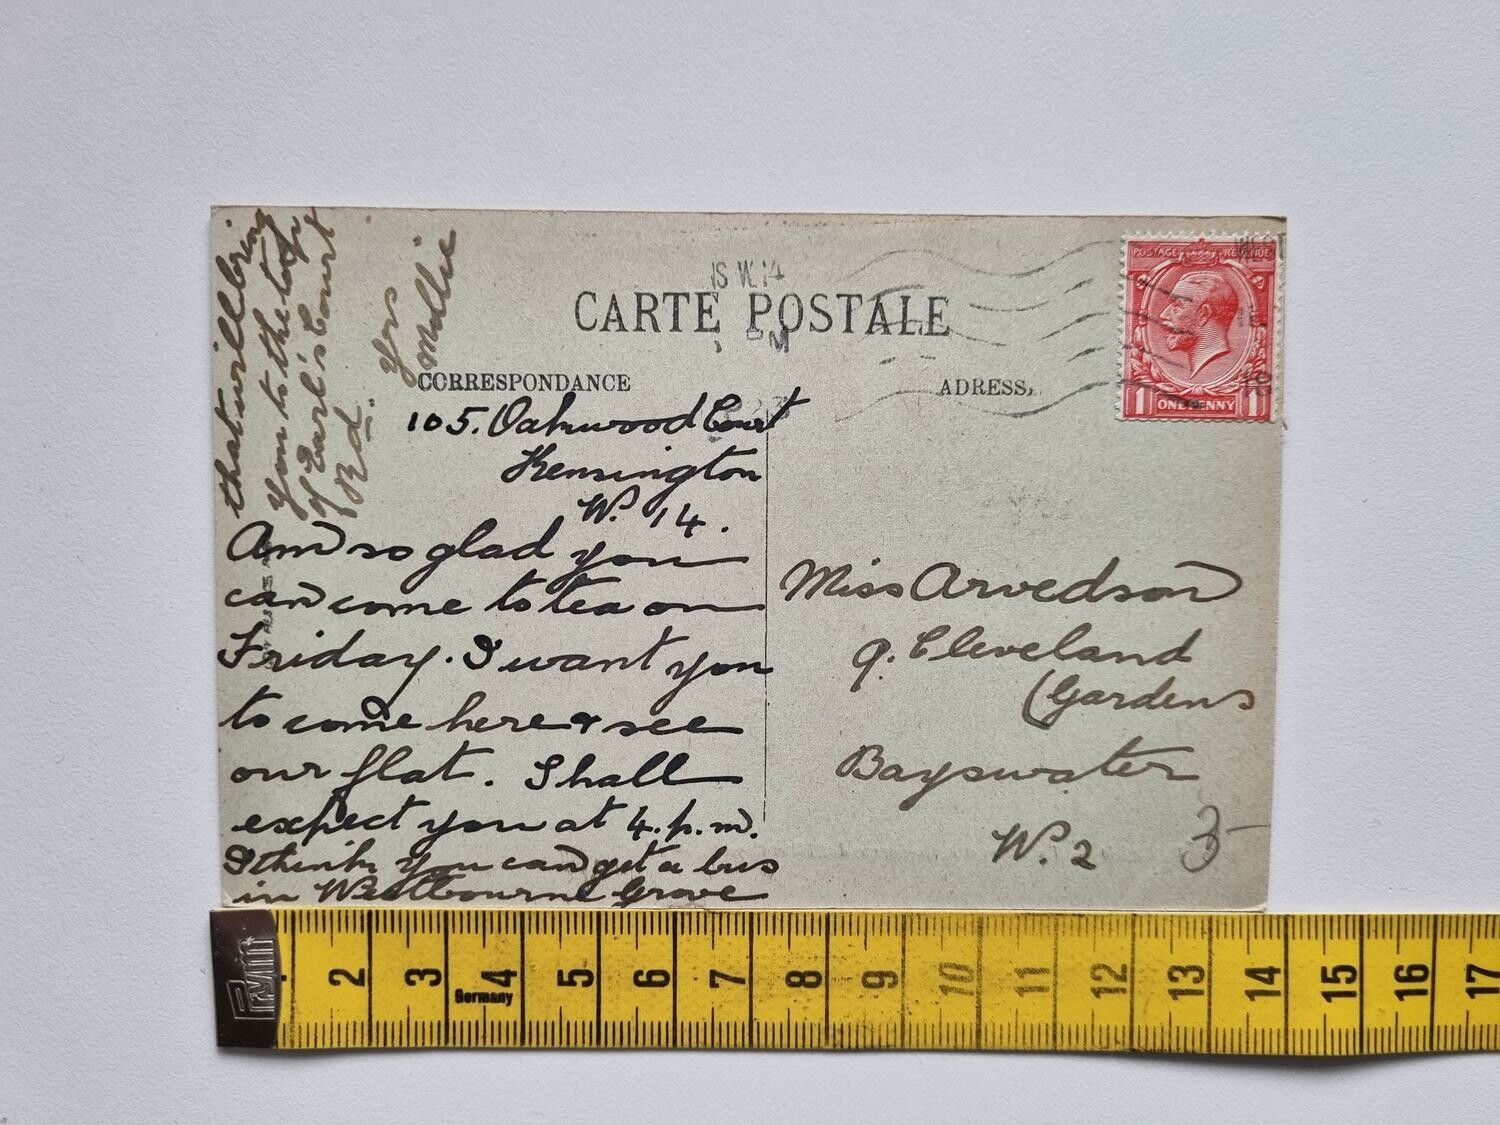 CARTE POSTALE
CORRESPONDANCE
ADRESSE
105. Oakwood Court
Kensington
W. 14.
Am so glad you
can come to tea on
Friday. I want you
to come here & see
our flat. Shall
expect you at 4. p.m.
I think you can get a bus
in Westbourne Grove
that will bring
you to the top
of Earl's Court
Rd.
Yrs
Mollie
Miss Arvedson
9. Cleveland
Gardens
Bayswater
W. 2
3-
POSTAGE REVENUE
1 ONE PENNY 1
W.14
PM
Prym
2 3 4 5 6 7 8 9 10 11 12 13 14 15 16 17
Germany